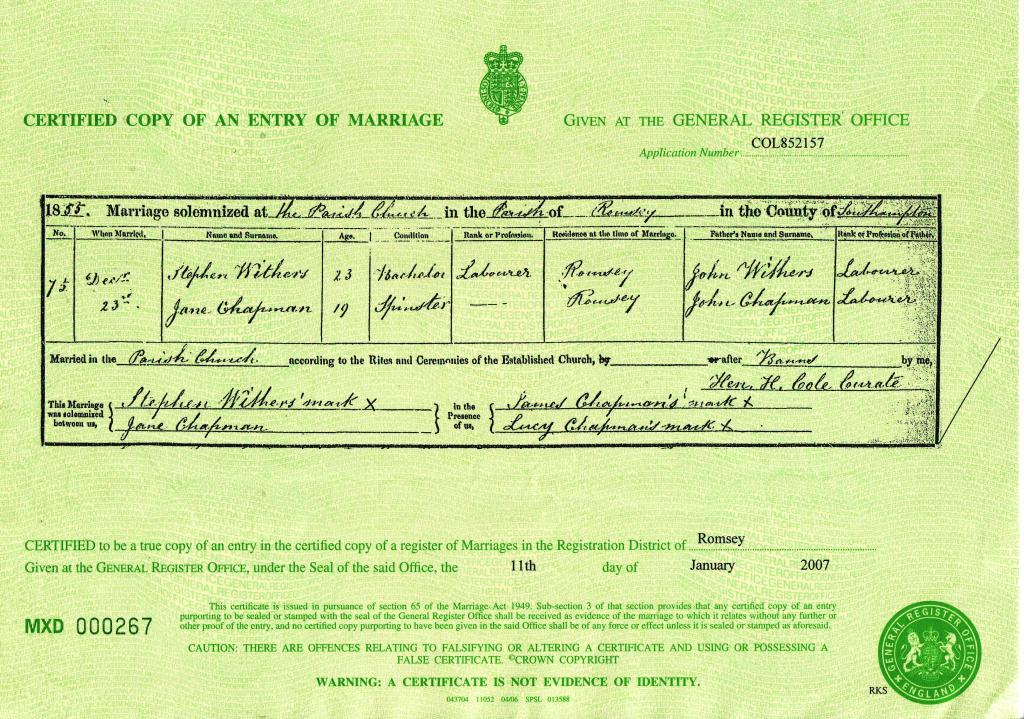 CERTIFIED COPY OF AN ENTRY OF MARRIAGE
GIVEN AT THE GENERAL REGISTER OFFICE
Application Number COL852157
1855. Marriage solemnized at the Parish Church in the Parish of Romsey in the County of Southampton
No. When Married. Name and Surname. Age. Condition Rank or Profession. Residence at the time of Marriage. Father's Name and Surname. Rank or Profession of Father.
75 Decr. Stephen Withers 23 Bachelor Labourer Romsey John Withers Labourer
23rd Jane Chapman 19 Spinster — Romsey John Chapman Labourer
Married in the Parish Church. according to the Rites and Ceremonies of the Established Church, by or after Banns by me,
Hen. H. Cole Curate
This Marriage was solemnized between us, { Stephen Withers' mark X } in the Presence of us, { James Chapman's mark X
Jane Chapman Lucy Chapman's mark X
CERTIFIED to be a true copy of an entry in the certified copy of a register of Marriages in the Registration District of Romsey
Given at the GENERAL REGISTER OFFICE, under the Seal of the said Office, the 11th day of January 2007
MXD 000267
This certificate is issued in pursuance of section 65 of the Marriage Act 1949. Sub-section 3 of that section provides that any certified copy of an entry
purporting to be sealed or stamped with the seal of the General Register Office shall be received as evidence of the marriage to which it relates without any further or
other proof of the entry, and no certified copy purporting to have been given in the said Office shall be of any force or effect unless it is sealed or stamped as aforesaid.
CAUTION: THERE ARE OFFENCES RELATING TO FALSIFYING OR ALTERING A CERTIFICATE AND USING OR POSSESSING A
FALSE CERTIFICATE. ©CROWN COPYRIGHT
WARNING: A CERTIFICATE IS NOT EVIDENCE OF IDENTITY.
043704 11052 04/06 SPSL 013588
RKS
GENERAL REGISTER OFFICE
ENGLAND